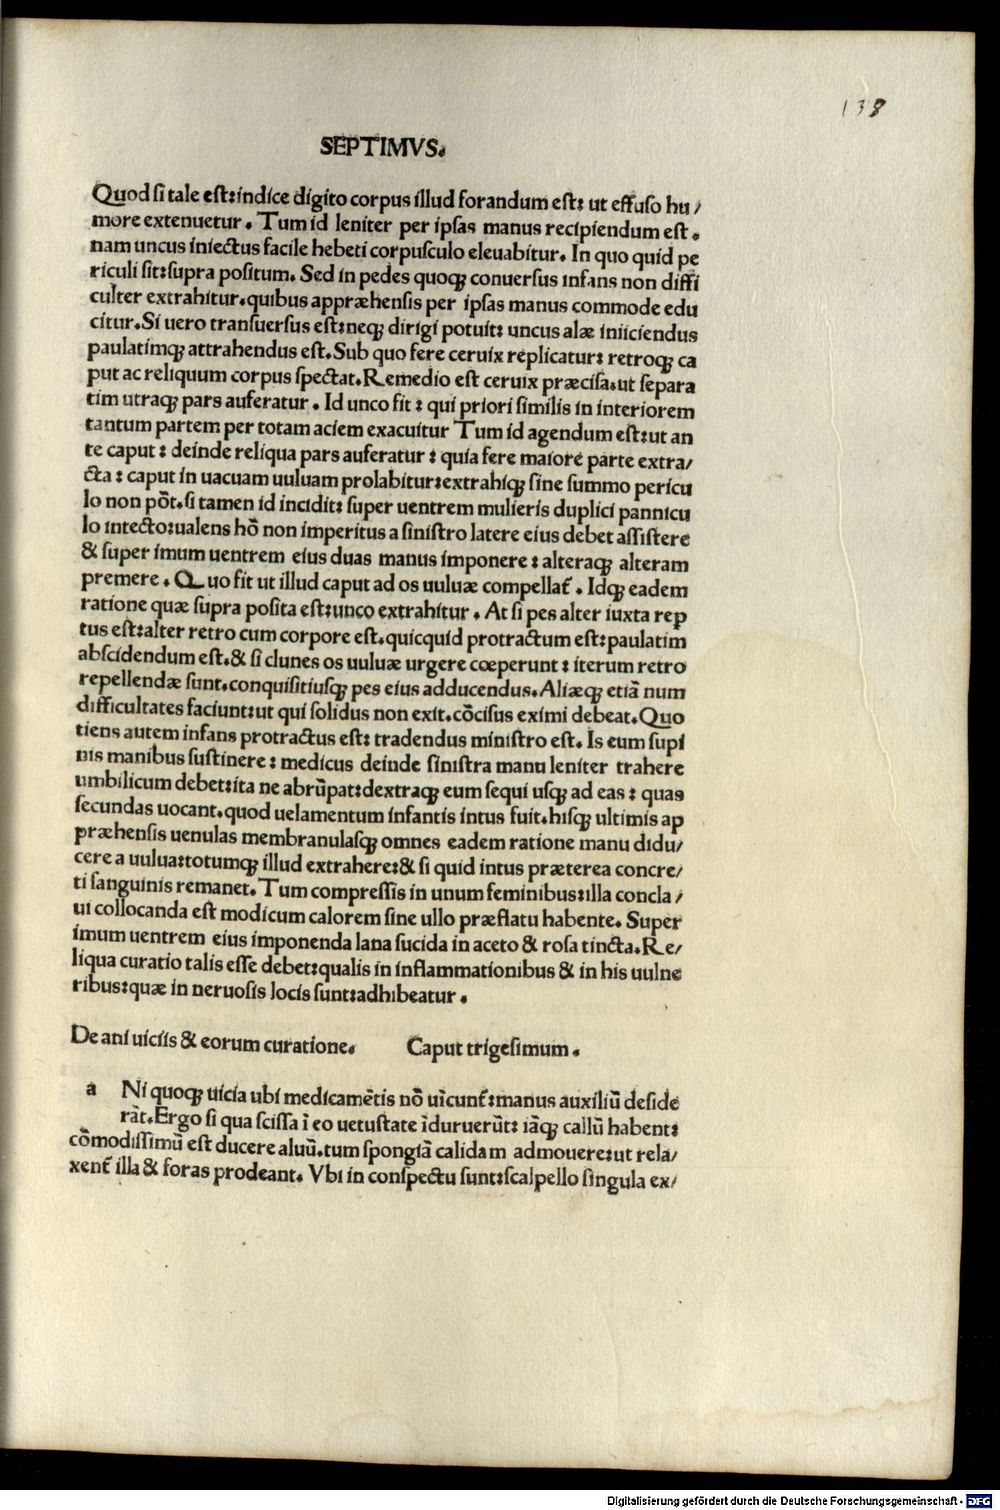 138
SEPTIMVS.
Quod si tale est: indice digito corpus illud forandum est: ut effuso hu/
more extenuetur. Tum id leniter per ipsas manus recipiendum est.
nam uncus iniectus facile hebeti corpusculo eleuabitur. In quo quid pe
riculi sit: supra positum. Sed in pedes quoqꝫ conuersus infans non diffi
culter extrahitur. quibus appræhensis per ipsas manus commode edu
citur. Si uero transuersus est: neqꝫ dirigi potuit: uncus alæ iniiciendus
paulatimqꝫ attrahendus est. Sub quo fere ceruix replicatur: retroqꝫ ca
put ac reliquum corpus spectat. Remedio est ceruix præcisa. ut separa
tim utraqꝫ pars auferatur. Id unco fit: qui priori similis in interiorem
tantum partem per totam aciem exacuitur Tum id agendum est: ut an
te caput: deinde reliqua pars auferatur: quia fere maiore parte extra/
cta: caput in uacuam uuluam prolabitur: extrahiqꝫ sine summo pericu
lo non põt. si tamen id incidit: super uentrem mulieris duplici pannicu
lo iniecto: ualens hõ non imperitus a sinistro latere eius debet assistere
& super imum uentrem eius duas manus imponere: alteraqꝫ alteram
premere. Quo fit ut illud caput ad os uuluæ compellat᷑. Idqꝫ eadem
ratione quæ supra posita est: unco extrahitur. At si pes alter iuxta rep
tus est: alter retro cum corpore est. quicquid protractum est: paulatim
abscidendum est. & si clunes os uuluæ urgere cœperunt: iterum retro
repellendæ sunt. conquisitiusqꝫ pes eius adducendus. Aliæqꝫ etiã num
difficultates faciunt: ut qui solidus non exit. cõcisus eximi debeat. Quo
tiens autem infans protractus est: tradendus ministro est. Is eum supi
nis manibus sustinere: medicus deinde sinistra manu leniter trahere
umbilicum debet: ita ne abrũpat: dextraqꝫ eum sequi usqꝫ ad eas: quas
secundas uocant. quod uelamentum infantis intus fuit. hisqꝫ ultimis ap
præhensis uenulas membranulasqꝫ omnes eadem ratione manu didu/
cere a uulua: totumqꝫ illud extrahere: & si quid intus præterea concre/
ti sanguinis remanet. Tum compressis in unum feminibus: illa concla/
ui collocanda est modicum calorem sine ullo præflatu habente. Super
imum uentrem eius imponenda lana sucida in aceto & rosa tincta. Re/
liqua curatio talis esse debet: qualis in inflammationibus & in his uulne
ribus: quæ in neruosis locis sunt: adhibeatur.
De ani uiciis & eorum curatione. Caput trigesimum.
a Ni quoqꝫ uicia ubi medicamẽtis nõ uicunt᷑: manus auxiliũ deside
rãt. Ergo si qua scissa ĩ eo uetustate ĩduruerũt: iãqꝫ callũ habent:
cõmodissimũ est ducere aluũ. tum spongiã calidam admouere: ut rela/
xent᷑ illa & foras prodeant. Vbi in conspectu sunt: scalpello singula ex/
Digitalisierung gefördert durch die Deutsche Forschungsgemeinschaft - DFG